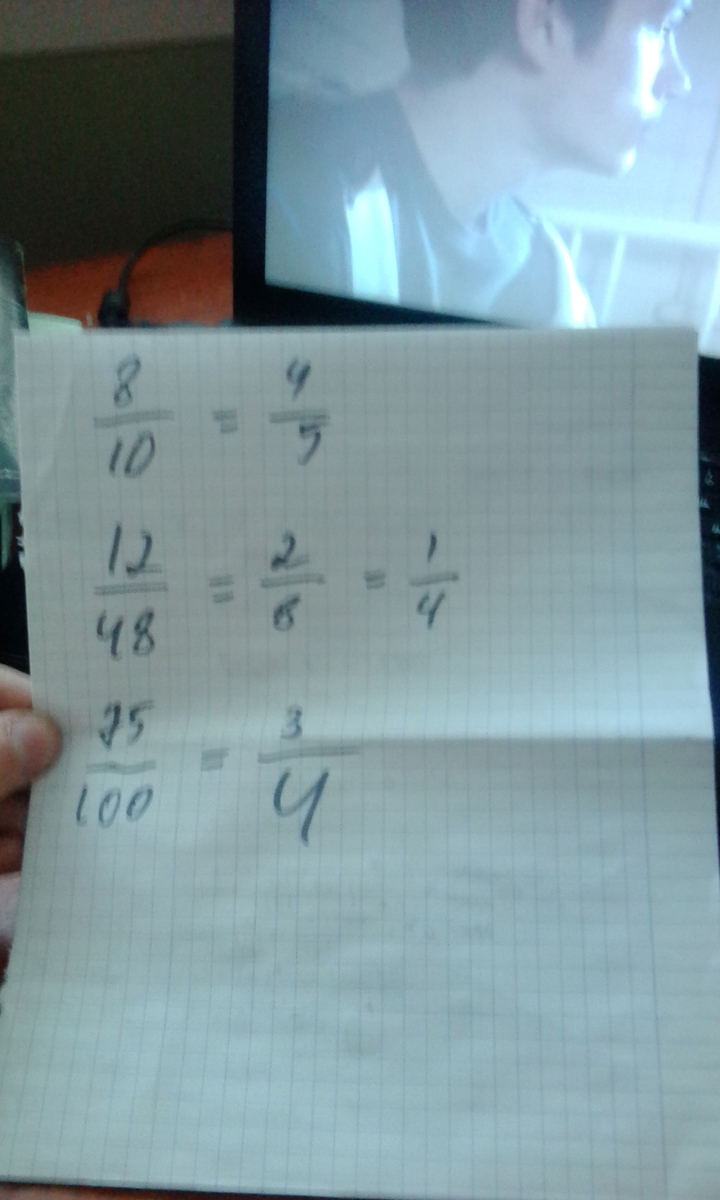 8/10 = 4/5
12/48 = 2/8 = 1/4
75/100 = 3/4